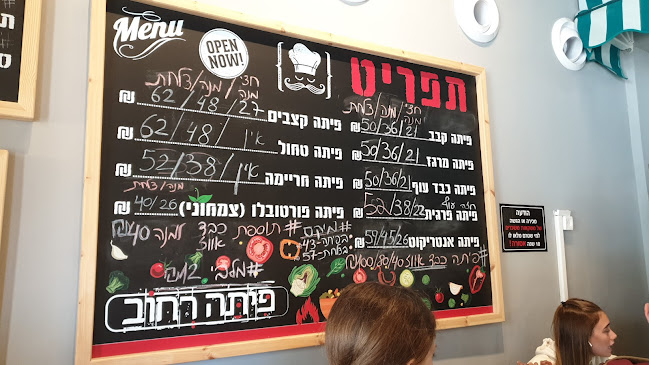 Menu
OPEN NOW!
תפריט
חצי/מנה/צלחת
מנה
פיתה קבב 50/36/21 ₪
פיתה מרגז 50/36/21 ₪
פיתה כבד עוף 50/36/21 ₪
פיתה פרגית 52/38/22 ₪
פיתה אנטריקוט 59/45/26 ₪
#פיתה כבד אווז
חצי/מנה/צלחת
מנה
פיתה קצבים 62/48/27 ₪
פיתה טחול אין/48/62 ₪
פיתה חריימה אין/38/52 ₪
מנה/צלחת
פיתה פורטובלו (צמחוני) 40/26 ₪
#תוספת כבד למנה 40₪
אווז
פיתה רחוב
הודעה